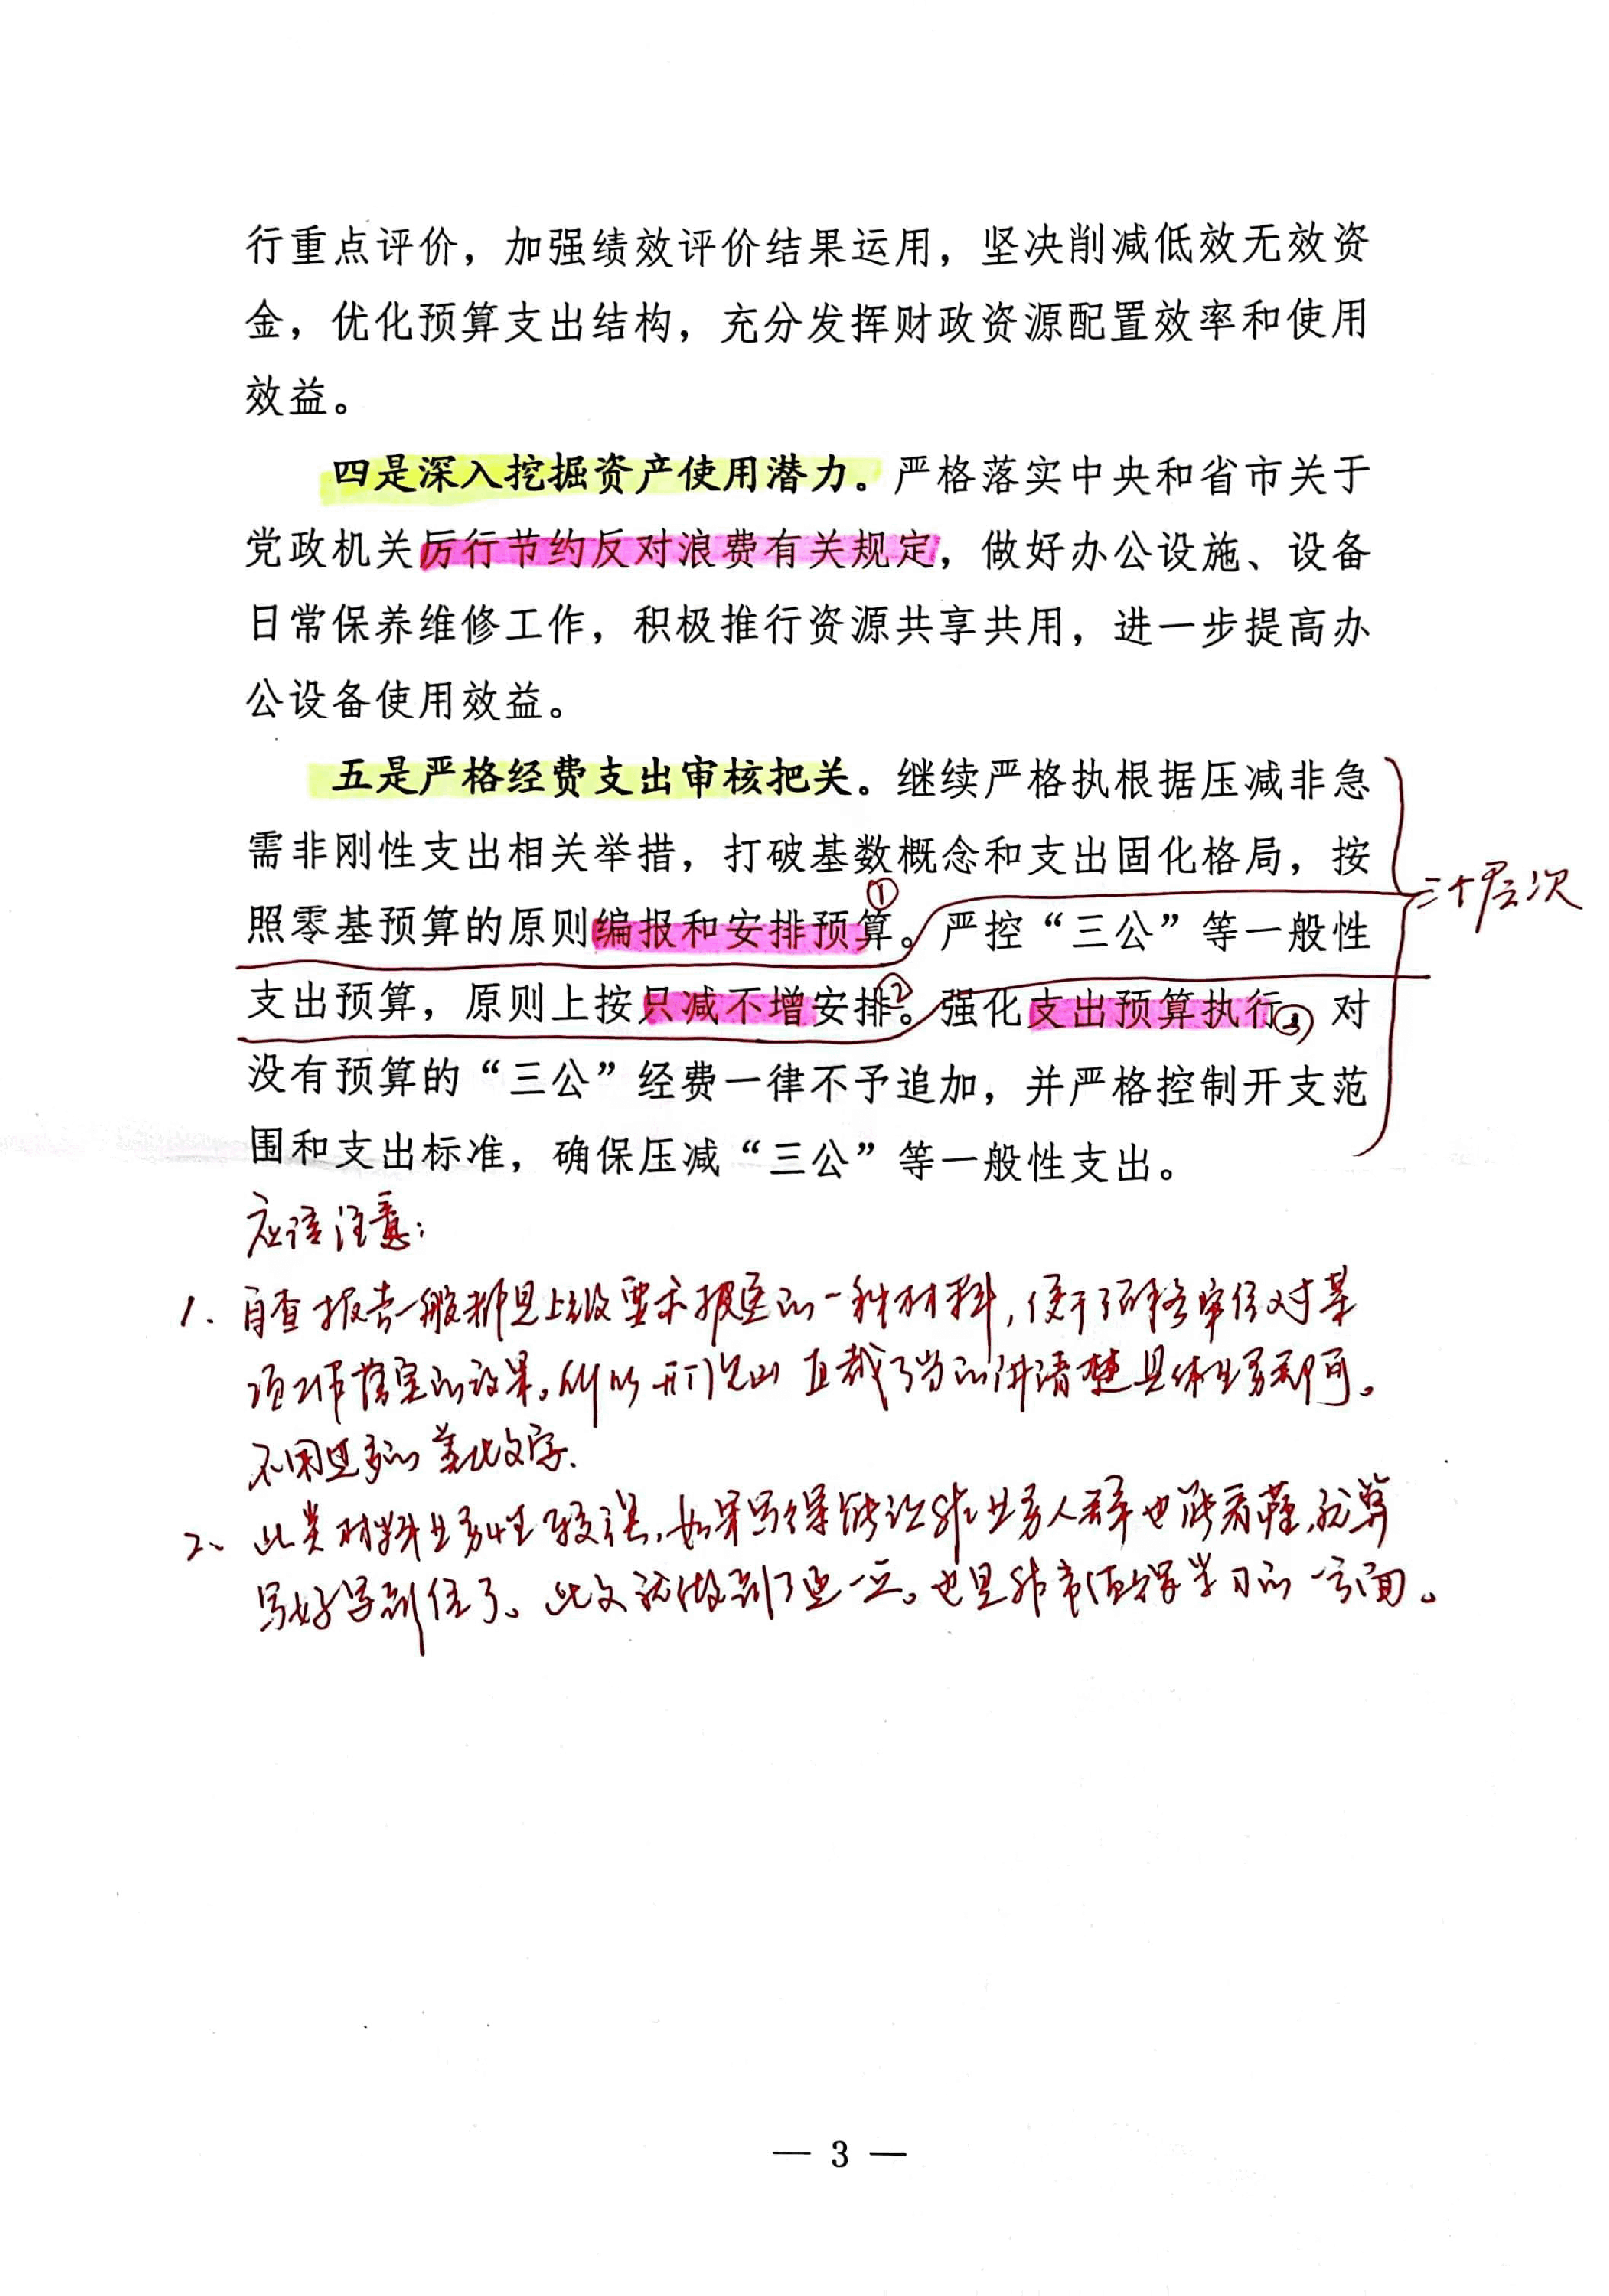 行重点评价，加强绩效评价结果运用，坚决削减低效无效资
金，优化预算支出结构，充分发挥财政资源配置效率和使用
效益。
四是深入挖掘资产使用潜力。严格落实中央和省市关于
党政机关厉行节约反对浪费有关规定，做好办公设施、设备
日常保养维修工作，积极推行资源共享共用，进一步提高办
公设备使用效益。
五是严格经费支出审核把关。继续严格执根据压减非急
需非刚性支出相关举措，打破基数概念和支出固化格局，按
照零基预算的原则编报和安排预算①。严控“三公”等一般性
三个层次
支出预算，原则上按只减不增安排②。强化支出预算执行③对
没有预算的“三公”经费一律不予追加，并严格控制开支范
围和支出标准，确保压减“三公”等一般性支出。
应该注意：
1. 自查报告一般都是上级要求报送的一种材料，便于了解各单位对某
项工作落实的效果。所以开门见山 直截了当的讲清楚具体业务即可。
不用过多的美化文字.
2、此类材料业务性较强，如果写得能让非业务人群也能看懂，就算
写好写到位了。此文就做到了这一点。也是非常值得学习的一方面。
— 3 —